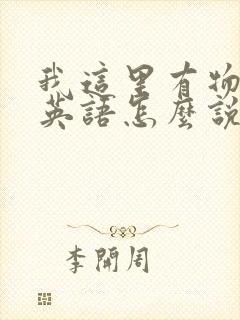 我這里有物
英語怎麼說
李開周